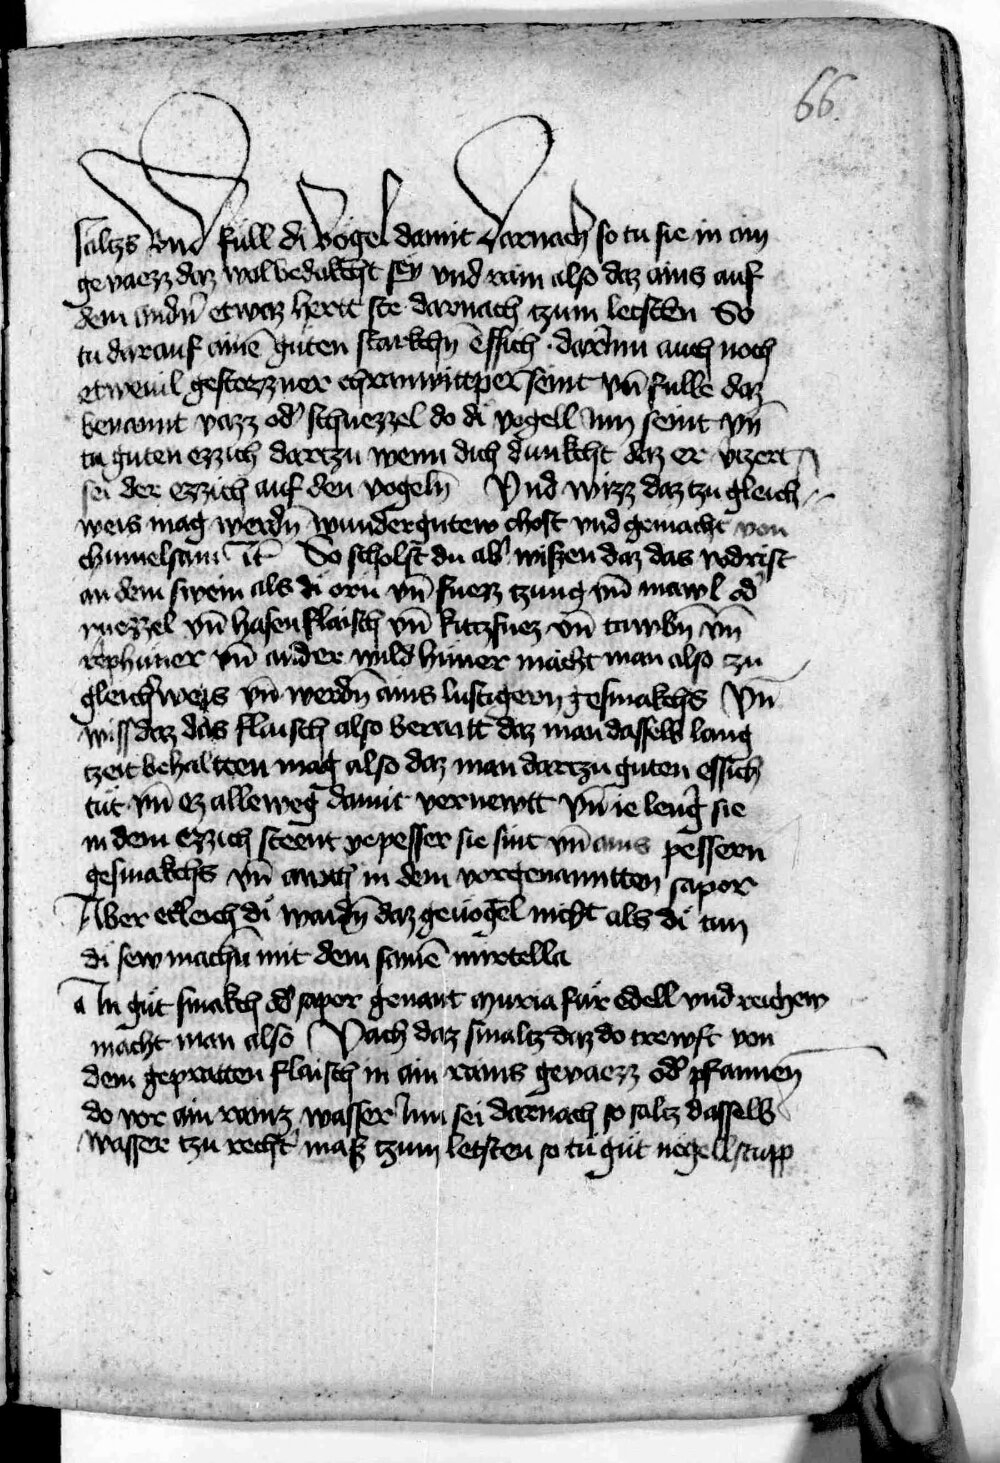 66.
saltzs vnd füll di vögel damit Darnach so tu sie in ain
gevaezz daz wol bedakcht sey vnd rain also daz ains auf
dem andn̄ etwaz hertt ste darnach tzum letsten So
tu darauf ainē guten starkchn̄ essich darinn auch noch
etwenil gestozzner chranwittper seint vn̄ fulle daz
benannt vazz od' schuezzel do di vogell inn seint vn̄
tu guten ezzich dartzu wenn dich dunkcht daz er v̈zert
sei der ezzich auf den vogeln̄ Vnd wizz daz tzu gleich
weis mag werdn̄ wundergutew chost vnd gemacht von
So scholst du ab' wissen daz das vodrist
an dem swein als di orn vn̄ fuezz tzung vn̄ mawl od'
ruezzel vn̄ hasen flaisch vn̄ kitzfuez vn̄ tawbn̄ vn̄
rephuner vn̄ ander wild hüner macht man also zu
gleich'weis vn̄ werdn̄ ains lustigern gesmakchs Vn̄
wiss daz das flaisch also beraitt daz man dasselb lang
tzeit behaltten mag also daz man dartzu guten essich
tut vn̄ ez alleweg damit vernewtt vn̄ ie leng' sie
in dem ezzich steent ye pesser sie sint vn̄ ains pessern
gesmakchs vn̄ auch in dem vorgenanntten sapor
Aber etleich di waidn̄ daz geuogel nicht als di tun
di sew machn̄ mit dem samē mirtella
Ain gut smakch od' sapor genant muria fur edell vnd reichew
macht man also Vach daz smaltz daz do trewft von
dem gepratten flaisch in ain rains gevaezz od' pfannen
do vor ain rainz wasser inn sei darnach so saltz dasselb
wasser tzu recht' mass tzum letsten so tu gut negellstupp